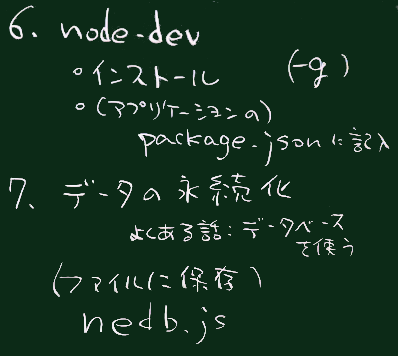 6. node-dev
◦インストール (-g)
◦(アプリケーションの)
package.jsonに記入
7. データの永続化
よくある話:データベース
を使う
(ファイルに保存)
nedb.js